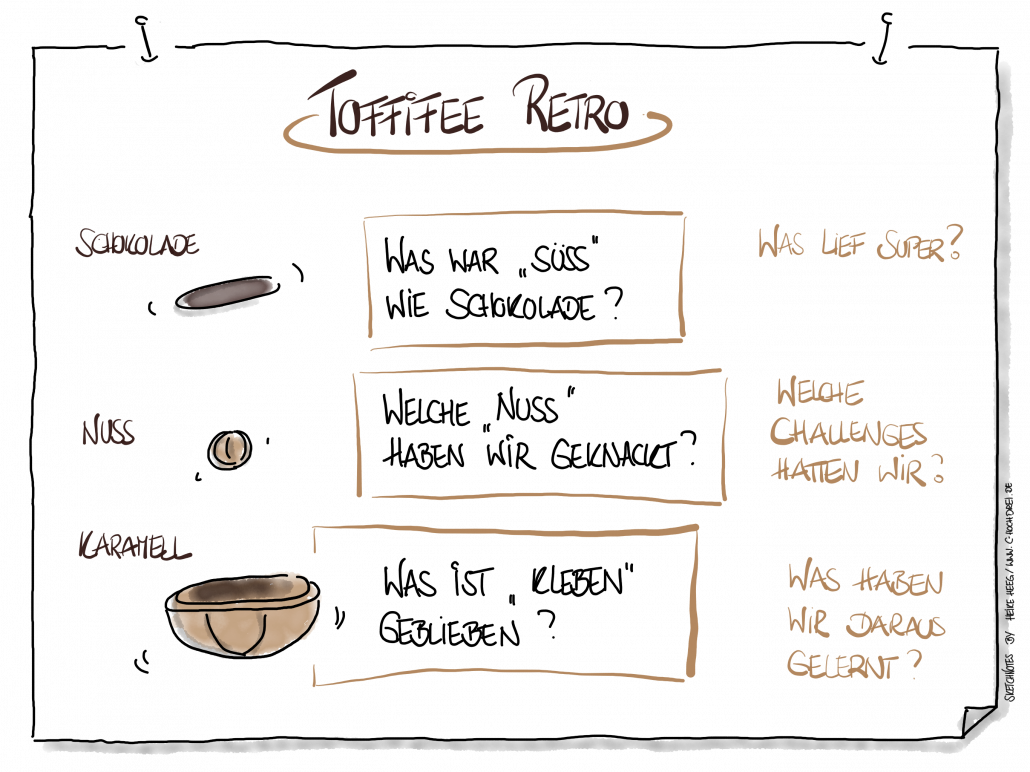 TOFFIFEE RETRO
SCHOKOLADE
WAS WAR „SÜSS"
WIE SCHOKOLADE?
WAS LIEF SUPER?
NUSS
WELCHE „NUSS"
HABEN WIR GEKNACKT?
WELCHE
CHALLENGES
HATTEN WIR?
KARAMELL
WAS IST „KLEBEN"
GEBLIEBEN?
WAS HABEN
WIR DARAUS
GELERNT?
SKETCHNOTES BY HEIKE HEEG / WWW.C-HOCHDREI.DE